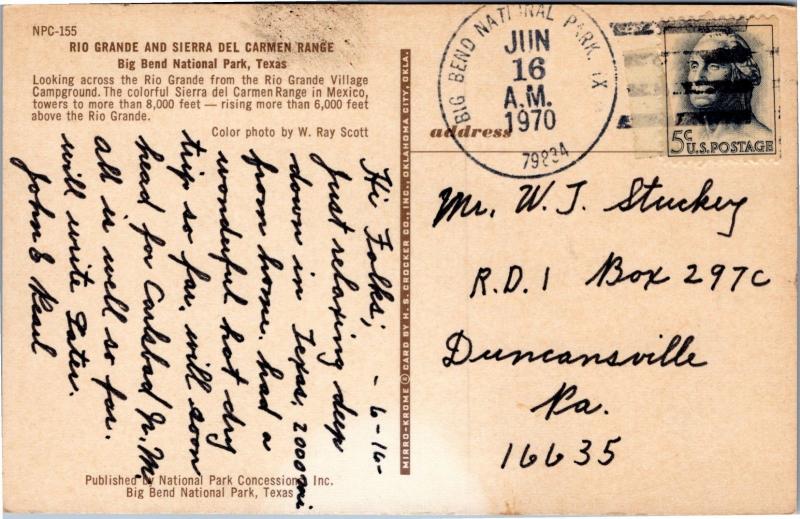 NPC-155
RIO GRANDE AND SIERRA DEL CARMEN RANGE
Big Bend National Park, Texas
Looking across the Rio Grande from the Rio Grande Village
Campground. The colorful Sierra del Carmen Range in Mexico,
towers to more than 8,000 feet — rising more than 6,000 feet
above the Rio Grande.
Color photo by W. Ray Scott
- 6-16-
Hi Folks;
Just relaxing deep
down in Texas, 2000 mi
from home. had a
wonderful hot dry
trip so far, will soon
head for Carlsbad N.M.
all is well so far.
will write Later.
John & Pearl
Published by National Park Concessions, Inc.
Big Bend National Park, Texas
MIRRO-KROME ® CARD BY H. S. CROCKER CO., INC., OKLAHOMA CITY, OKLA.
BIG BEND NATIONAL PARK, TX
JUN
16
A.M.
1970
79834
5c
U.S. POSTAGE
address
Mr. W. J. Stuckey
R.D. 1 Box 297C
Duncansville
Pa.
16635